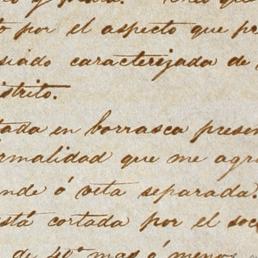 o por el aspecto que pre
siado caracterizada de
istrito.
tada en borrasca presen
rmalidad que me agr
nde ó veta separada.
stá cortada por el soc
de 40° mas ó menos